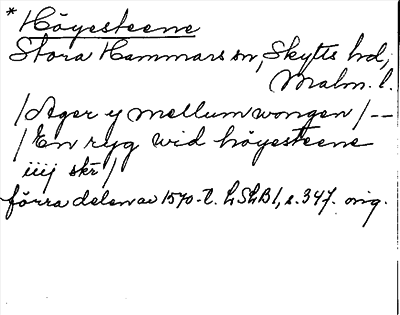 * Höyesteene
Stora Hammars sn, Skytts hd,
Malm. l.
/Ager y mellum wongen/--
/En ryg wid höyesteene
iiij skr/
förra delen av 1570-t. LSLB1, s. 347. orig.